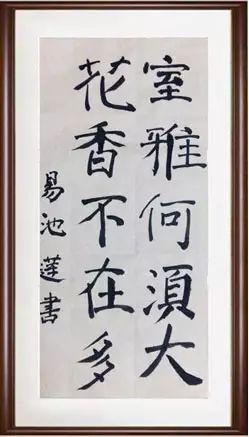 室雅何須大
花香不在多
易池莲書